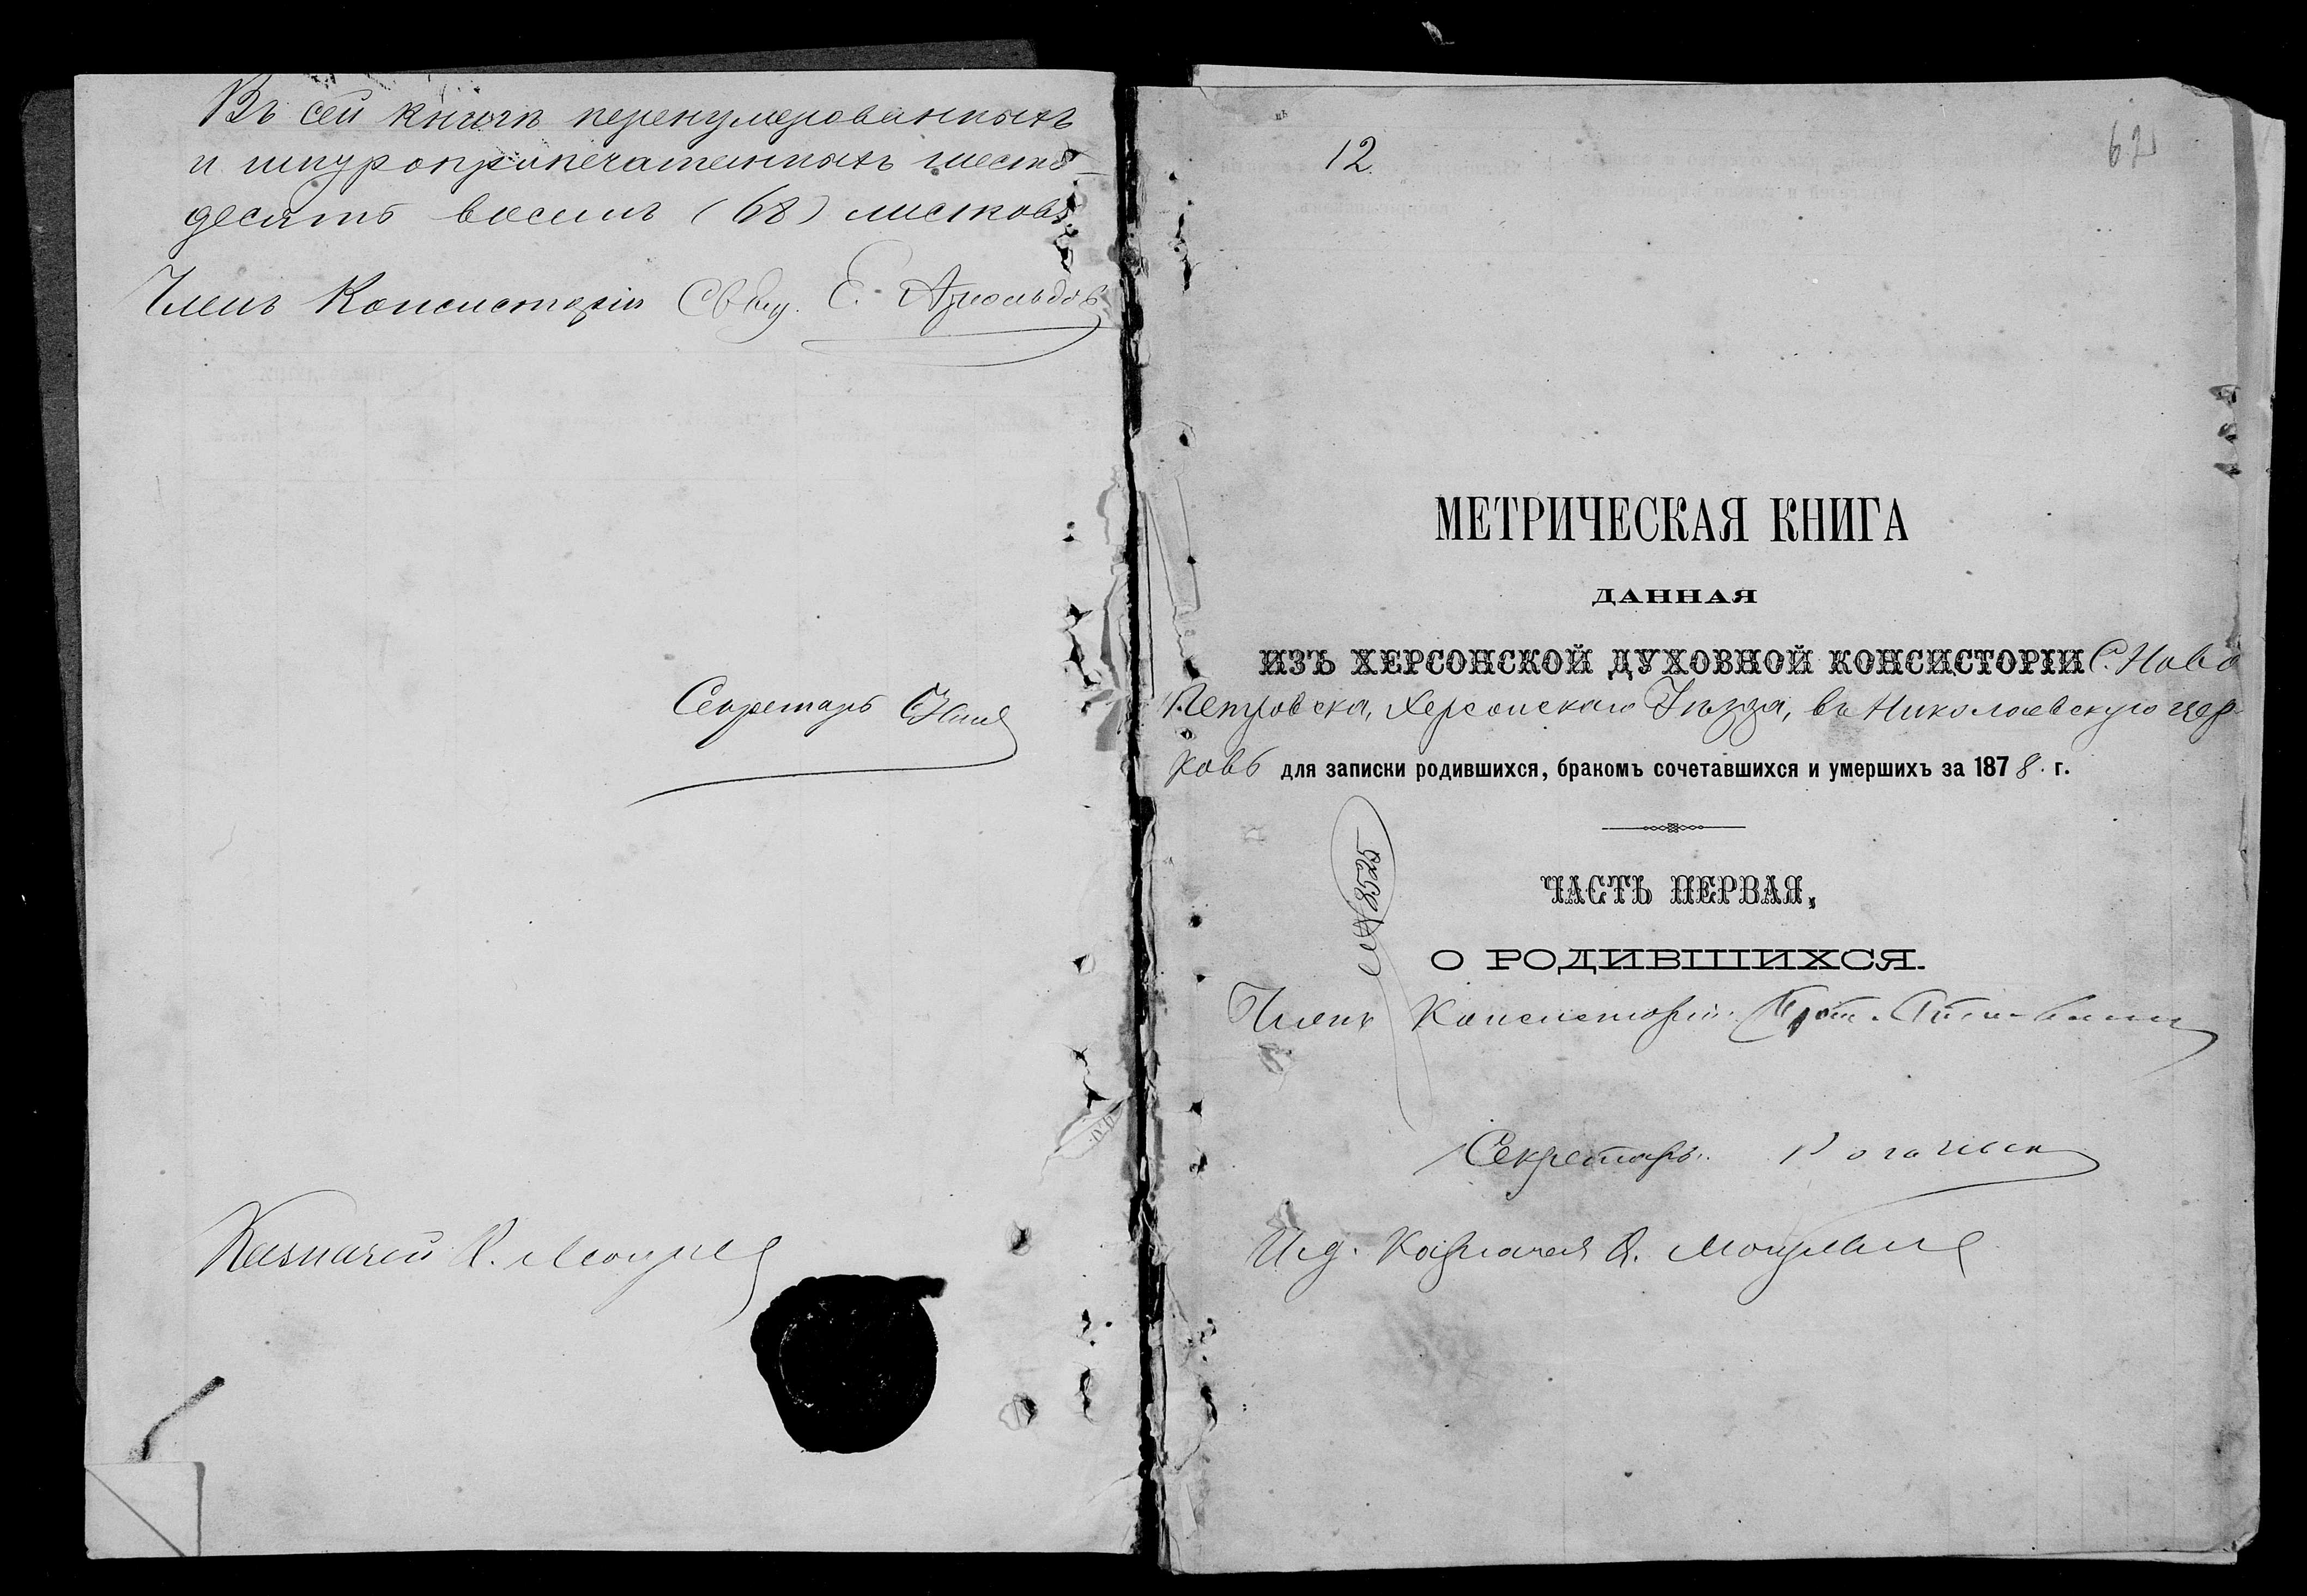 Въ сей книгѣ перенумерованныхъ
и шнуроприпечатанныхъ шесть-
десятъ восемь (68) листовъ.
Членъ Консисторіи Свящ. Е. Арнольдовъ
Секретарь
Казначей
12.
62
МЕТРИЧЕСКАЯ КНИГА
ДАННАЯ
ИЗЪ ХЕРСОНСКОЙ ДУХОВНОЙ КОНСИСТОРІИ С. Ново
Петровска, Херсонскаго Уѣзда, въ Николаевскую цер-
ковь для записки родившихся, бракомъ сочетавшихся и умершихъ за 1878. г.
№ 8525
ЧАСТЬ ПЕРВАЯ,
О РОДИВШИХСЯ.
Членъ Консисторіи Прот.
Секретарь
И. д. Казначея